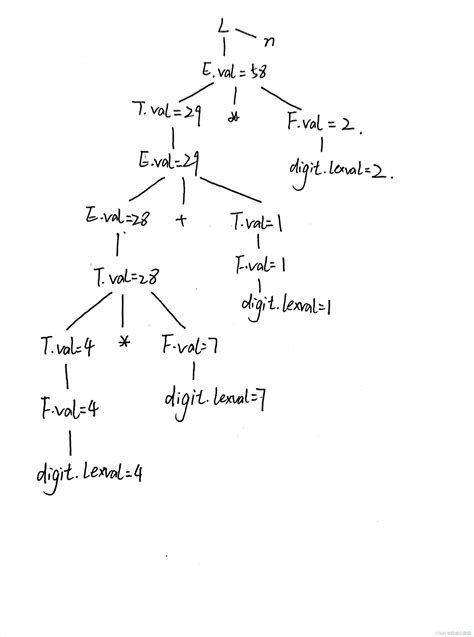 L n
E.val=58
T.val=29 * F.val=2.
E.val=29 digit.lexval=2.
E.val=28 + T.val=1
T.val=28 F.val=1
digit.lexval=1
T.val=4 * F.val=7
F.val=4 digit.lexval=7
digit.lexval=4